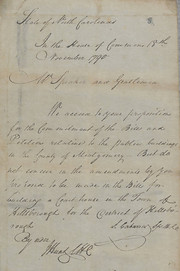 State of North Carolina
In the House of Commons 13th
November 1790
Mr Speaker and Gentlemen
We accede to your proposition
for the Commitment of the Bills and
Petition relative to the public buildings
in the County of Montgomery. But do
not concur in the amendments by you
proposed to be made in the Bill for
building a Court house in the Town of
Hillsborough for the District of Hillsbo
rough
S. Cabarrus Sp. H. C.
By order
J Hunt C H C